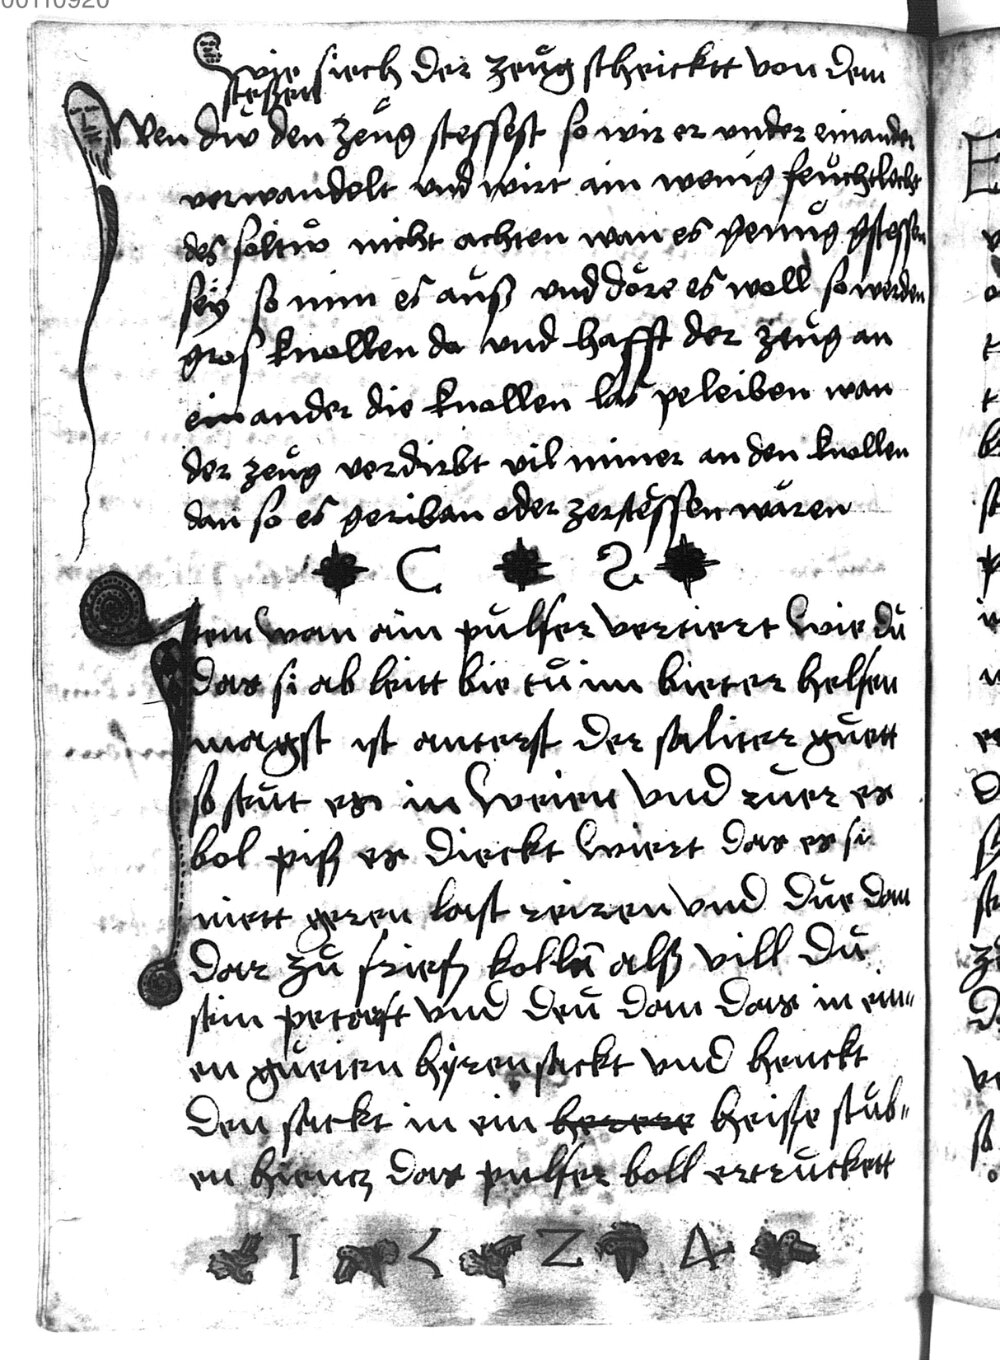 00110920
Wie siech der zeüg scheicktt von dem
stessen
Wen düo den zeüg stessest so wir er vnder einander
verwandelt vnd wirt ain wenig feüchtlecht
des soltüo nicht achten wan es genüg gstessen
seÿ so nim es auß vnd döre es woll so werden
gros knollen da vnd hafft der zeüg an
ein ander die knollen las peleiben wan
der zeüg verdirbt vil miner an den knollen
dan so es geriban oder zerstessen wären
C 2
Item wan ain pulfer vertiert wie dü
das si ab leitt bie tü im bieter helfen
magst ist anterst der saliter guett
so stutt es in weien vnd ruer es
bol piß es dieckt wiert das es si
niett geren last reiren vnd due dan
dar zü frisch kolln alß vill dü
sein petarft vnd deü dan das in ein„
en gueten hÿrensackt vnd henckt
den sackt in ein heiße stub„
en hiencz das pulfer boll ertruckett
1 < Z 4